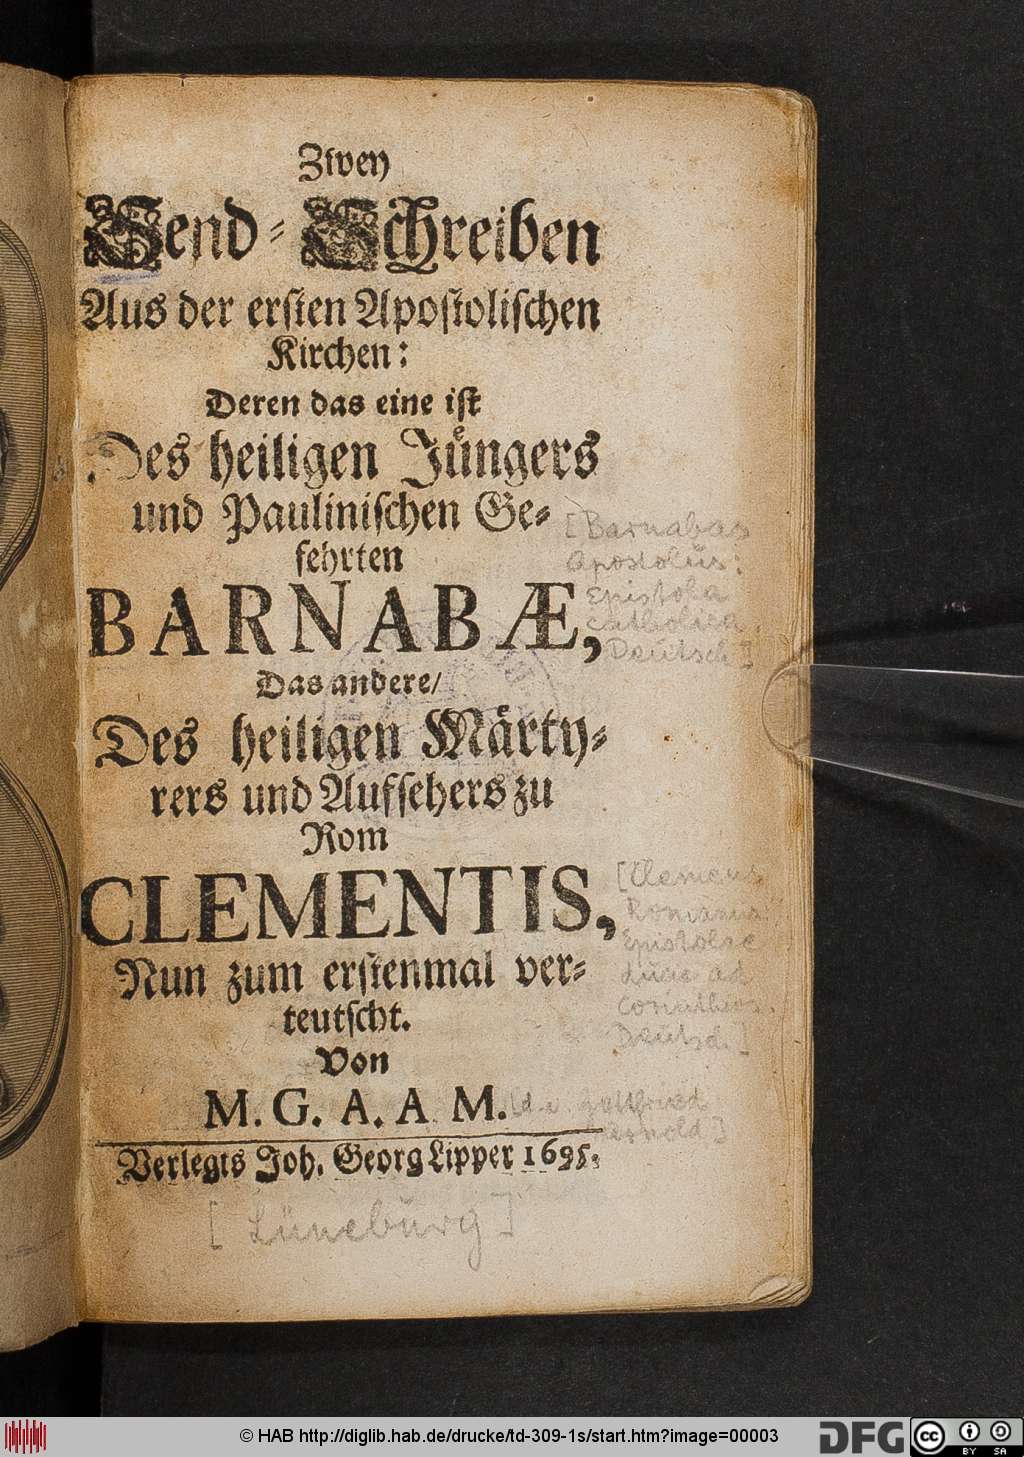 Zwey
Send-Schreiben
Aus der ersten Apostolischen
Kirchen:
Deren das eine ist
Des heiligen Jüngers
und Paulinischen Ge-
fehrten
BARNABÆ,
Das andere/
Des heiligen Märty-
rers und Aufsehers zu
Rom
CLEMENTIS,
Nun zum erstenmal ver-
teutscht.
Von
M. G. A. A M.
Verlegts Joh. Georg Lipper 1695.
[Barnabas
Apostolus:
Epistola
catholica.
Deutsch]
[Clemens
Romanus:
Epistolae
duae ad
Corinthios.
Deutsch.]
Gottfried
Arnold]
[Lüneburg]
© HAB http://diglib.hab.de/drucke/td-309-1s/start.htm?image=00003
DFG
cc
BY SA